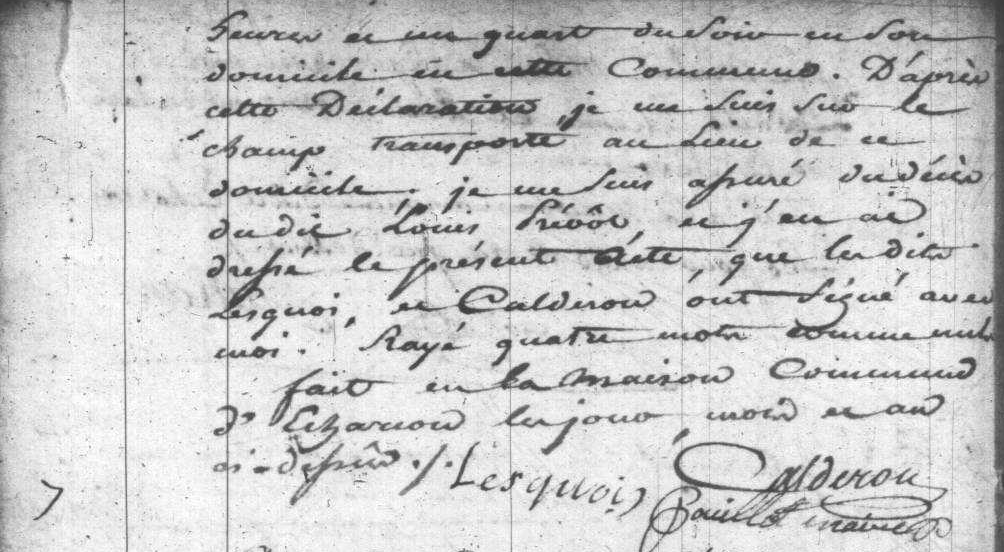 heures et un quart du Soir en Son
domicile en cette Commune. D'après
cette Déclaration, je me Suis Sur le
champ transporté au Lieu de ce
domicile. je me Suis assuré du décès
du dit Louis Prévôt, et j'en ai
dressé le présent Acte, que les dits
Lesquoi, et Calderon ont Signé avec
moi. Rayé quatre mots comme nuls
fait en la maison Commune
d'Echarcon les jour, mois et an
ci-dessus ./. Lesquois Calderon
maire
7